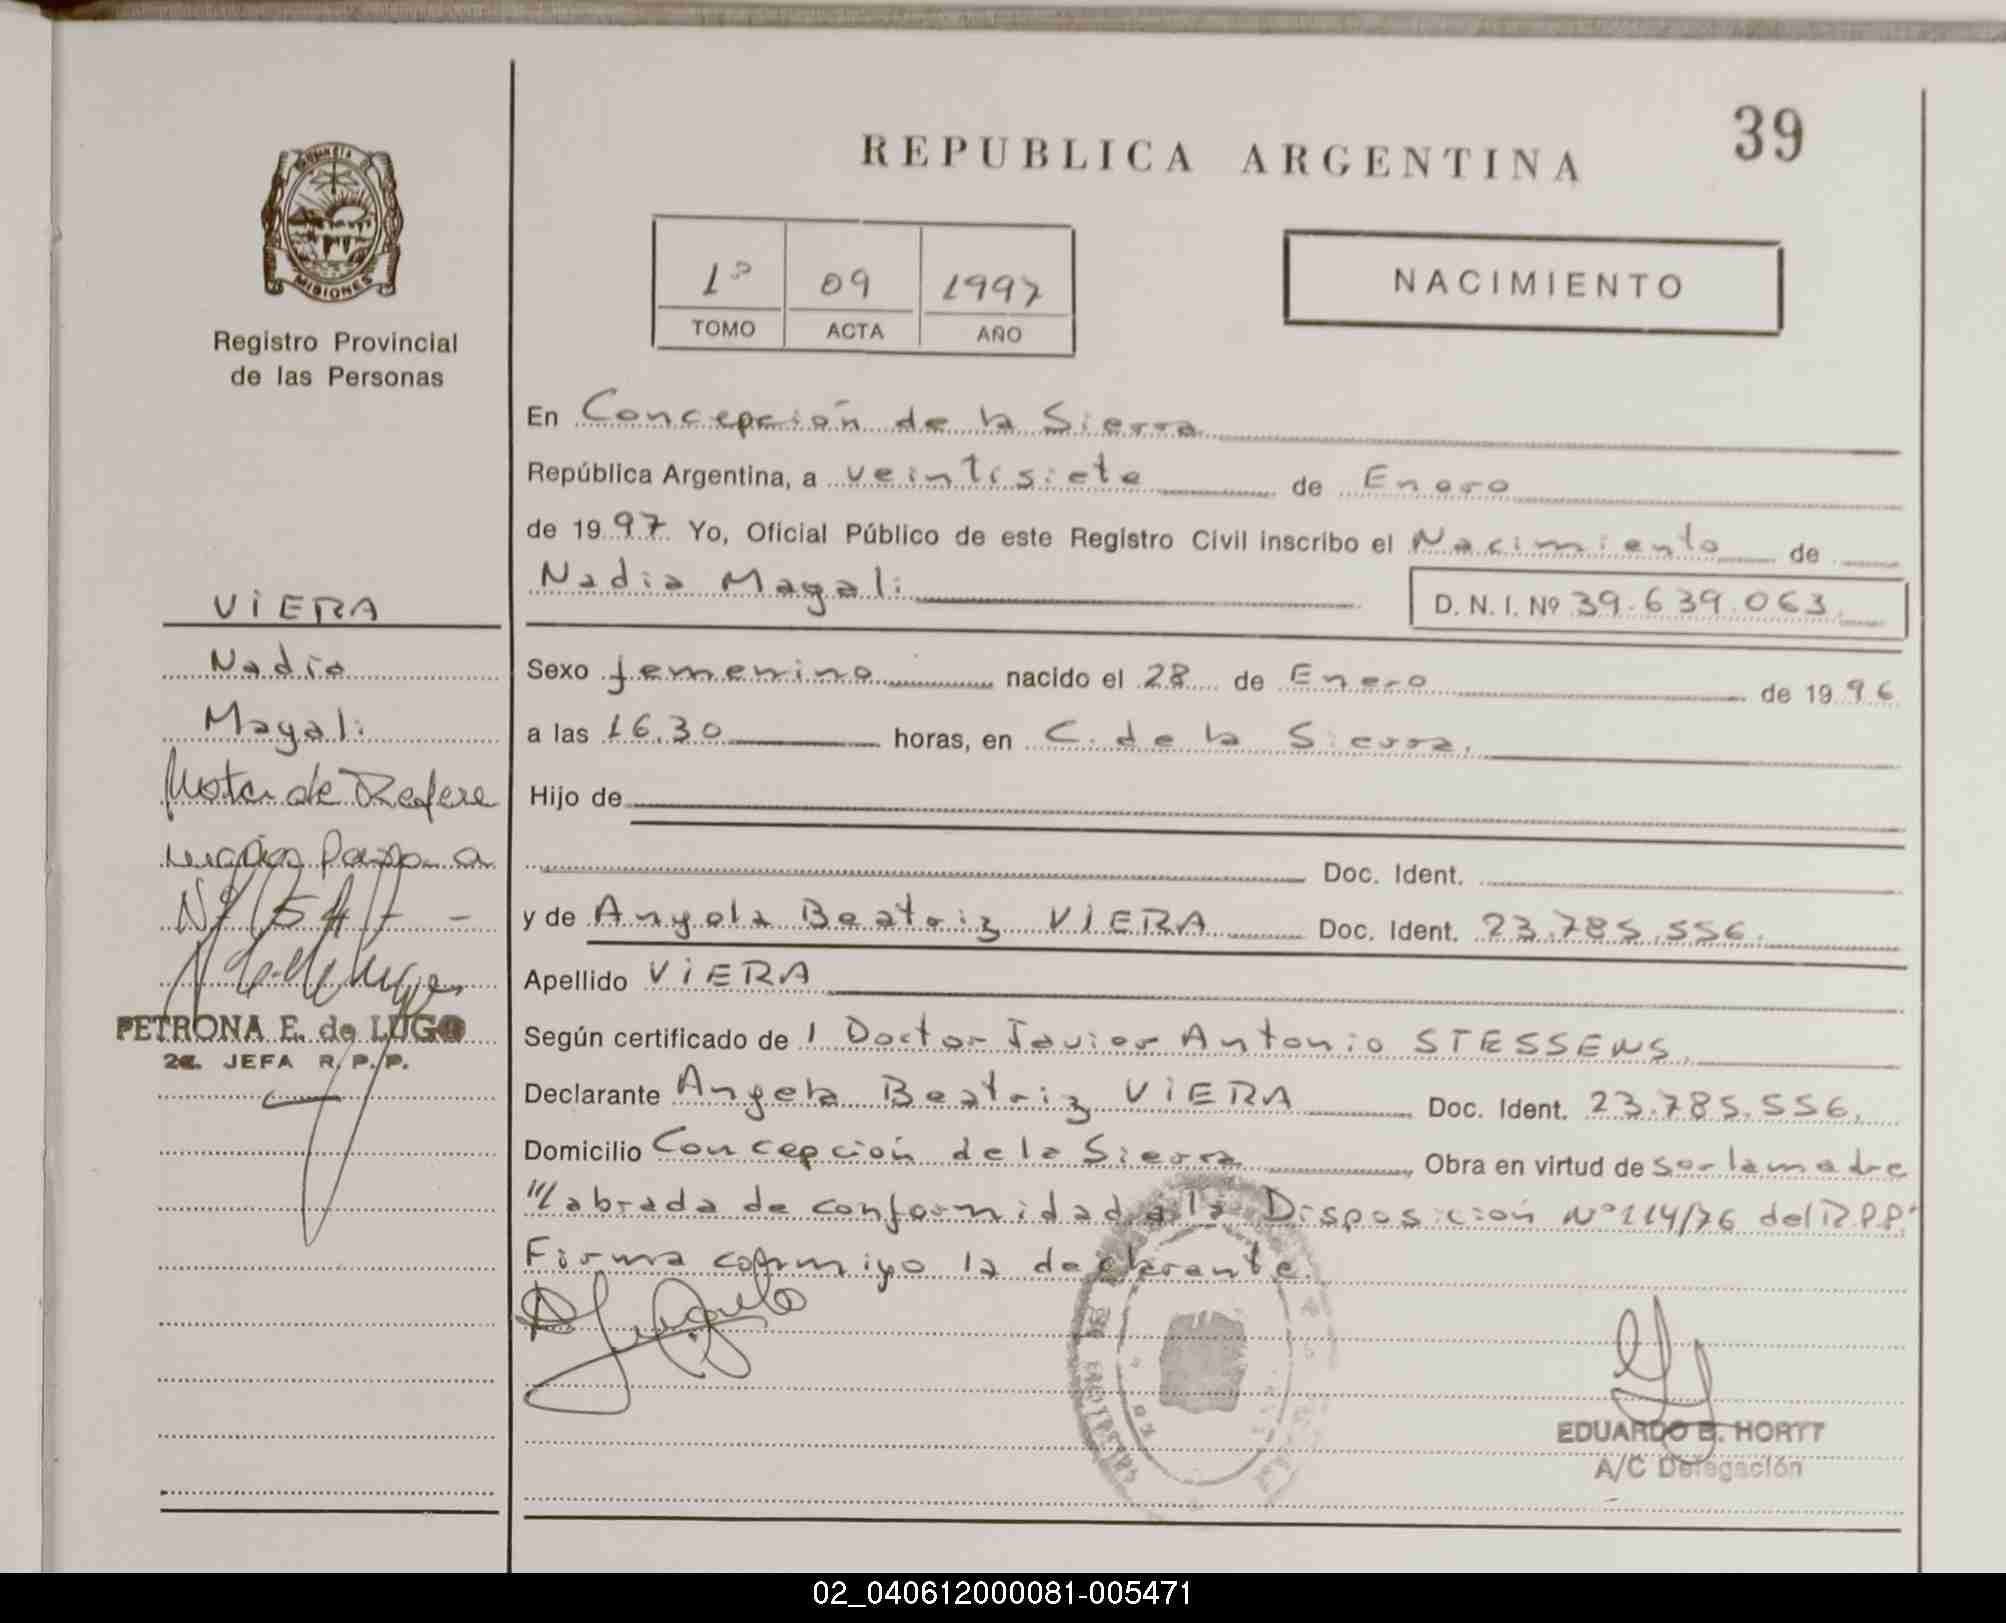 39
REPUBLICA ARGENTINA
PROVINCIA DE
MISIONES
Registro Provincial
de las Personas
1º 09 1997
TOMO ACTA AÑO
NACIMIENTO
En Concepción de la Sierra
República Argentina, a veintisiete de Enero
de 1997 Yo, Oficial Público de este Registro Civil inscribo el Nacimiento de
Nadia Magali
D. N. I. Nº 39.639.063.
Sexo femenino nacido el 28 de Enero de 1996
a las 16.30 horas, en C. de la Sierra.
Hijo de
Doc. Ident.
y de Angela Beatriz VIERA Doc. Ident. 23.785.556.
Apellido VIERA
Según certificado de l Doctor Javier Antonio STESSENS.
Declarante Angela Beatriz VIERA Doc. Ident. 23.785.556.
Domicilio Concepción de la Sierra, Obra en virtud de ser la madre
"Labrada de conformidad a la Disposición Nº 114/76 del R.P.P."
Firma conmigo la declarante.
EDUARDO B. HORTT
A/C Delegación
VIERA
Nadia
Magali
Nota de Refere
Nº
PETRONA E. de LUGO
2a. JEFA R.P.P.
02_040612000081-005471